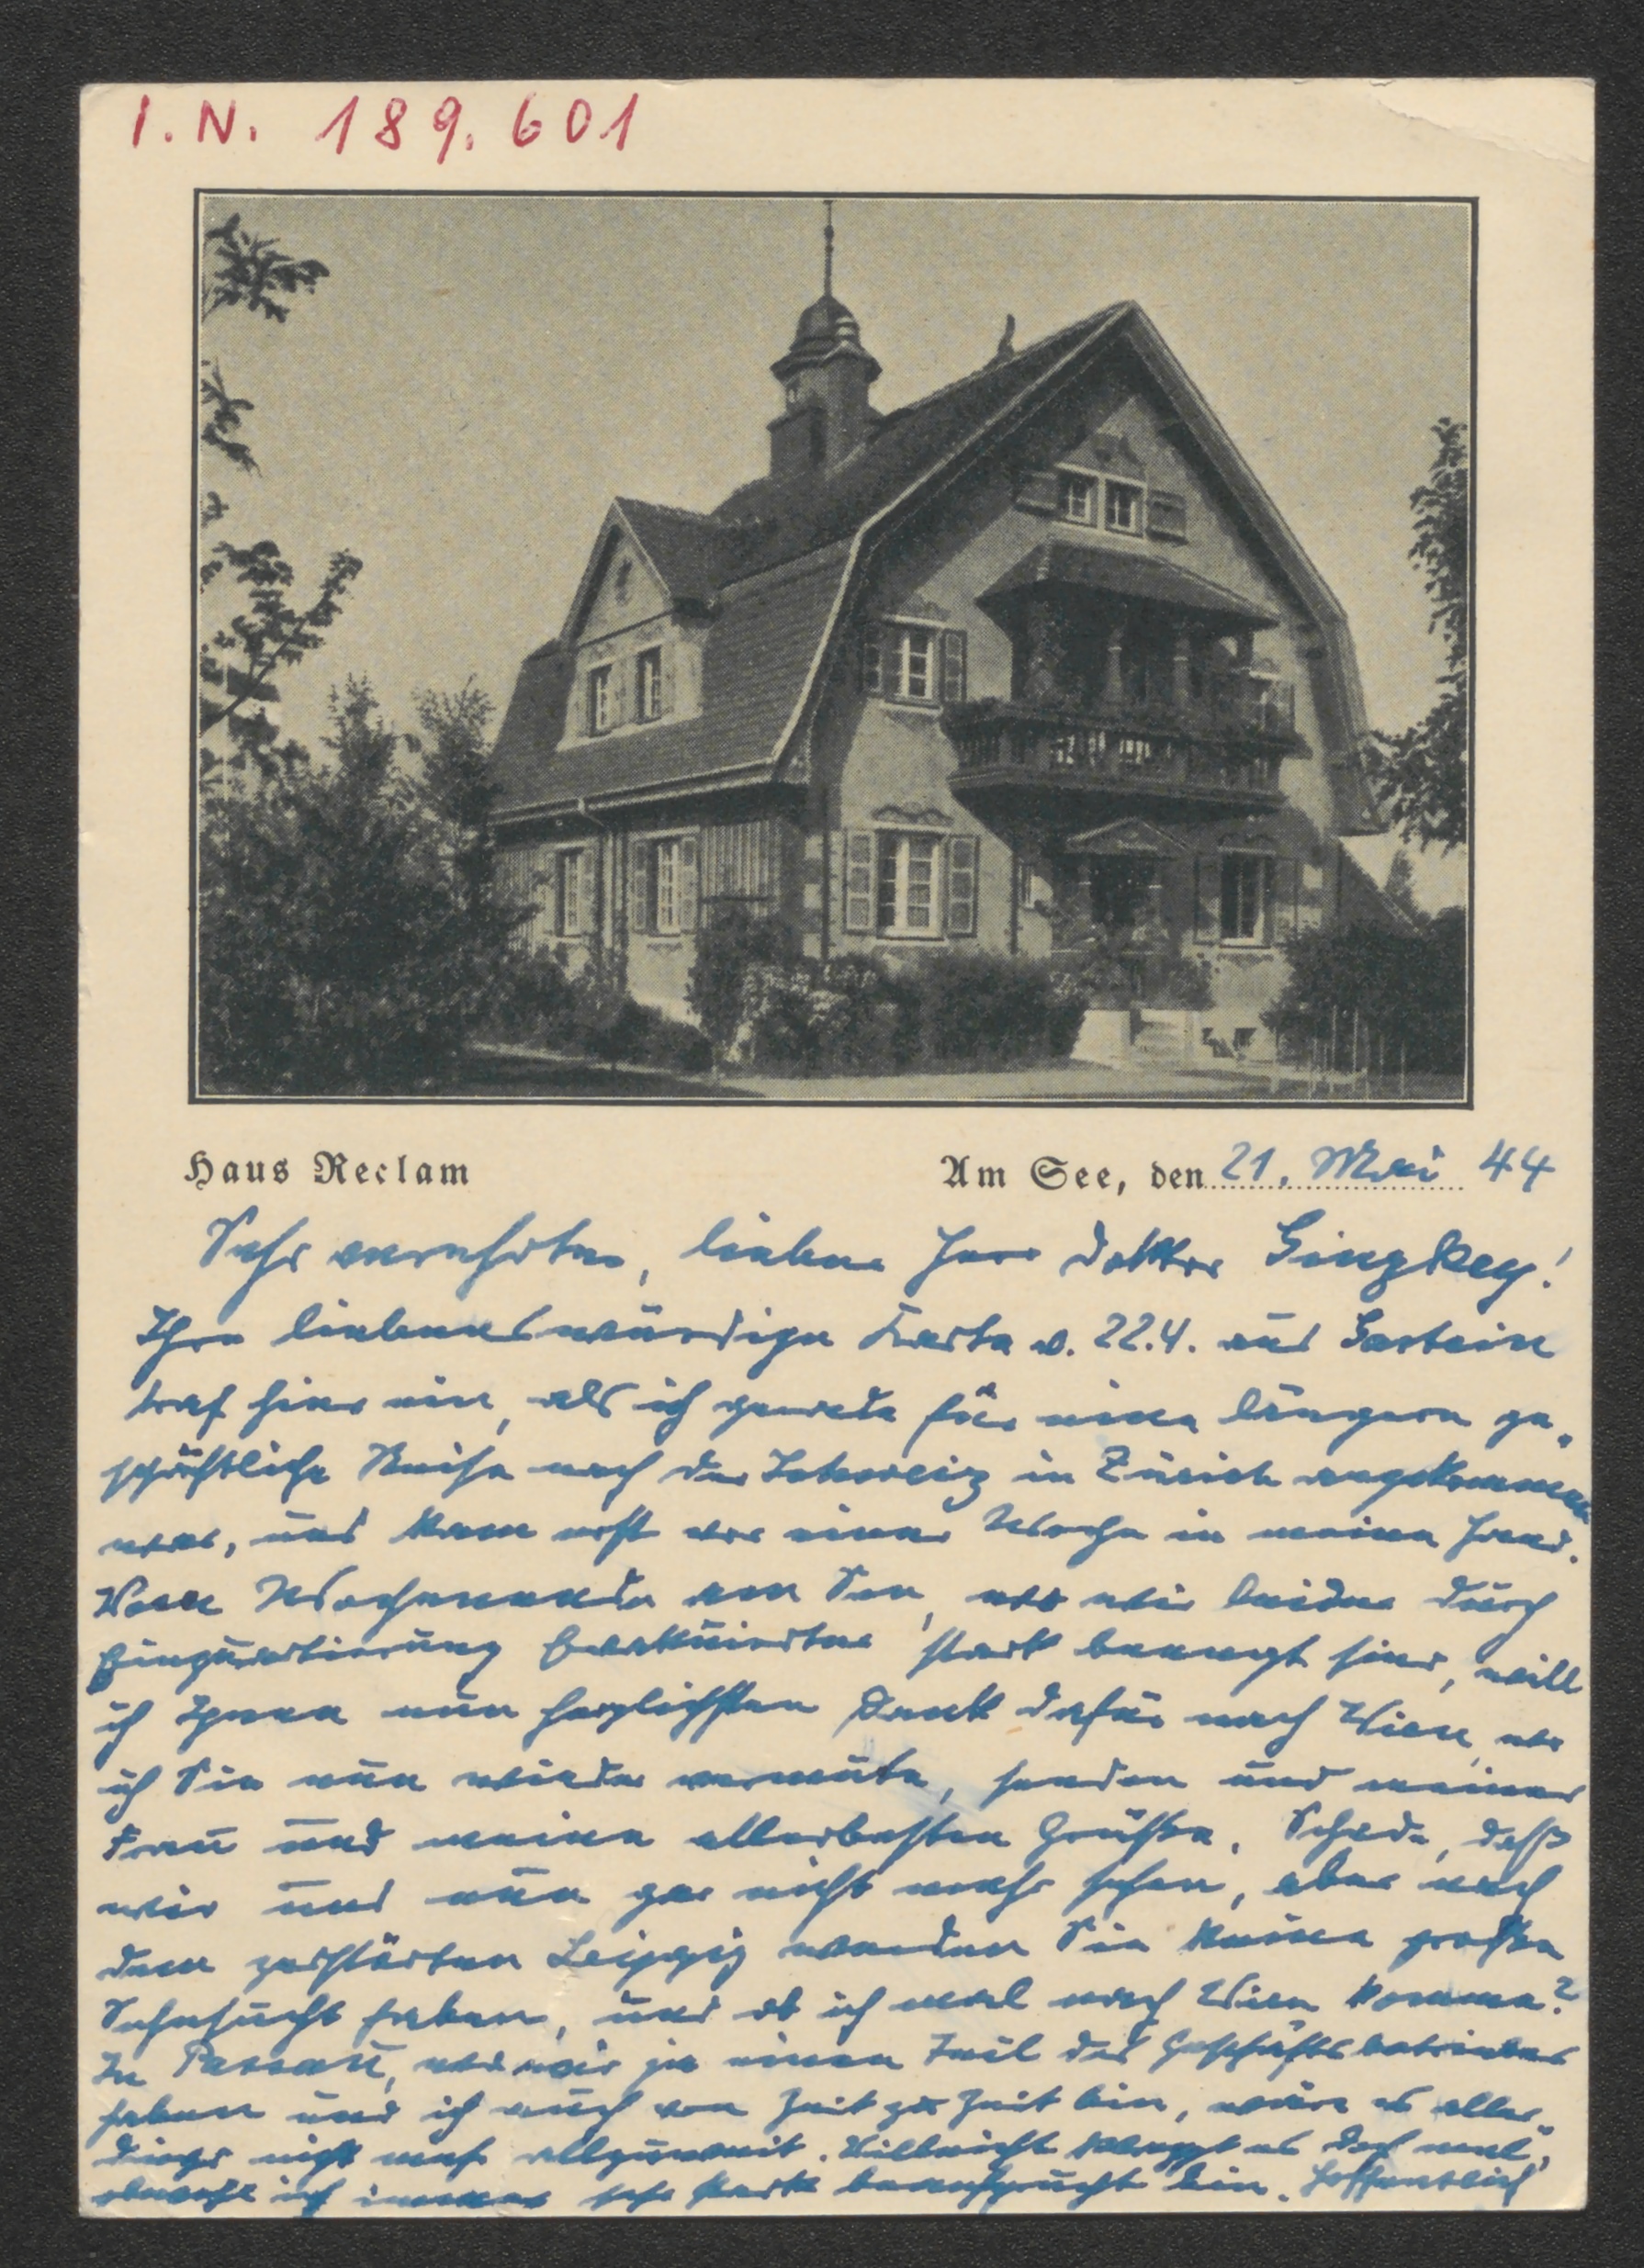 I. N. 189.601
Haus Reclam
Am See, den 21. Mai 44
Sehr verehrter, lieber Herr Doktor Ginzkey!
Ihre liebenswürdige Karte v. 22.4. aus Gastein
traf hier ein, als ich gerade für eine längere ge-
schäftliche Reise nach der Schweiz in Zürich angekommen
war, und kam erst vor einer Woche in meine Hand.
Vom Wochenende am See, wo wir leider durch
Einquartierung Evakuierter stark beengt sind, will
ich Ihnen nun herzlichsten Dank dafür nach Wien, wo
ich Sie nun wieder vermute, senden und meiner
Frau und meine allerbesten Grüße. Schade, daß
wir uns nun gar nicht mehr sehen, aber nach
dem zerstörten Leipzig werden Sie keine große
Sehnsucht haben, und ob ich mal nach Wien komme?
In Passau, wo wir ja einen Teil des Geschäftsbetriebes
haben und ich auch von Zeit zu Zeit bin, wäre es aller-
dings nicht mehr allzuweit. Vielleicht klappt es doch mal,
obwohl ich immer sehr stark beansprucht bin. Hoffentlich